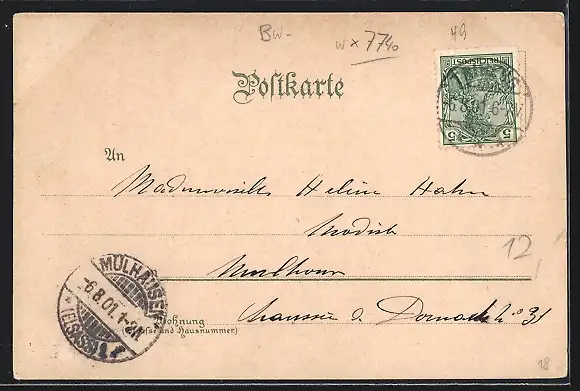 BW-
W x 7740
49
Postkarte
REICHSPOST
5 5
6.8.01.6-7
An
Mademoiselle Helene Hahn
Modiste
Mulhouse
MÜLHAUSEN
-6.8.01.1-2N.
(ELSASS)
Wohnung
(Straße und Hausnummer)
Chaussée d. Dornach No 31
12
18